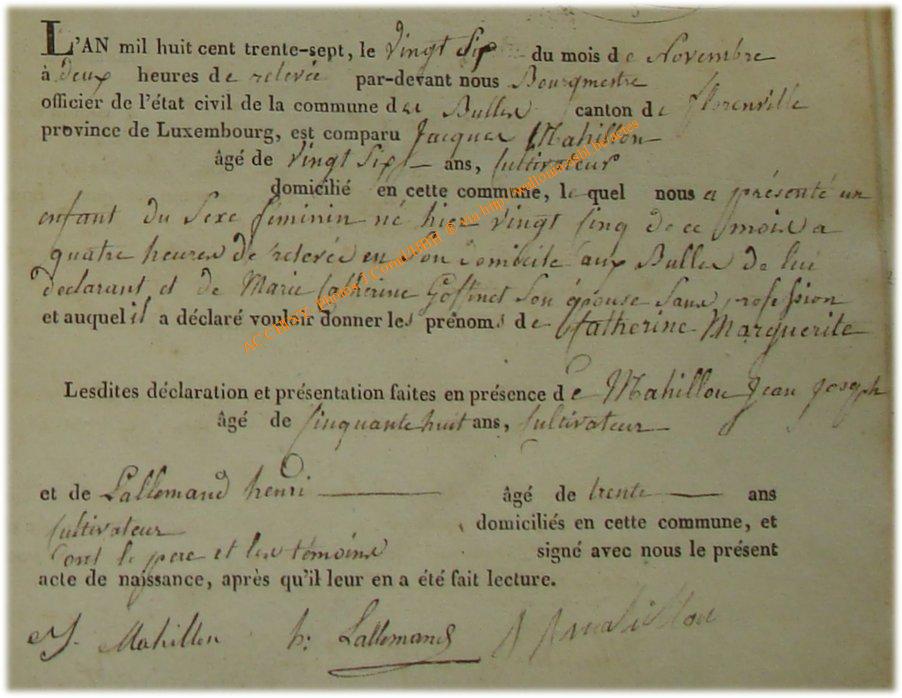 L'AN mil huit cent trente-sept, le vingt six du mois de Novembre
à deux heures de relevée par-devant nous Bourgmestre
officier de l'état civil de la commune des Bulles canton de florenville
province de Luxembourg, est comparu Jacques Mahillon
âgé de vingt six ans, Cultivateur
domicilié en cette commune, lequel nous a présenté un
enfant du sexe féminin né hier vingt cinq de ce mois a
quatre heures de relevée en son domicile aux Bulles de lui
déclarant et de Marie Catherine Goffinet son épouse sans profession
et auquel il a déclaré vouloir donner les prénoms de Catherine Marguerite
Lesdites déclaration et présentation faites en présence de Mahillon Jean Joseph
âgé de Cinquante huit ans, Cultivateur
et de Lallemand henri âgé de trente ans
Cultivateur domiciliés en cette commune, et
ont le pere et les témoins signé avec nous le présent
acte de naissance, après qu'il leur en a été fait lecture.
J. Mahillon h: Lallemand Mahillon